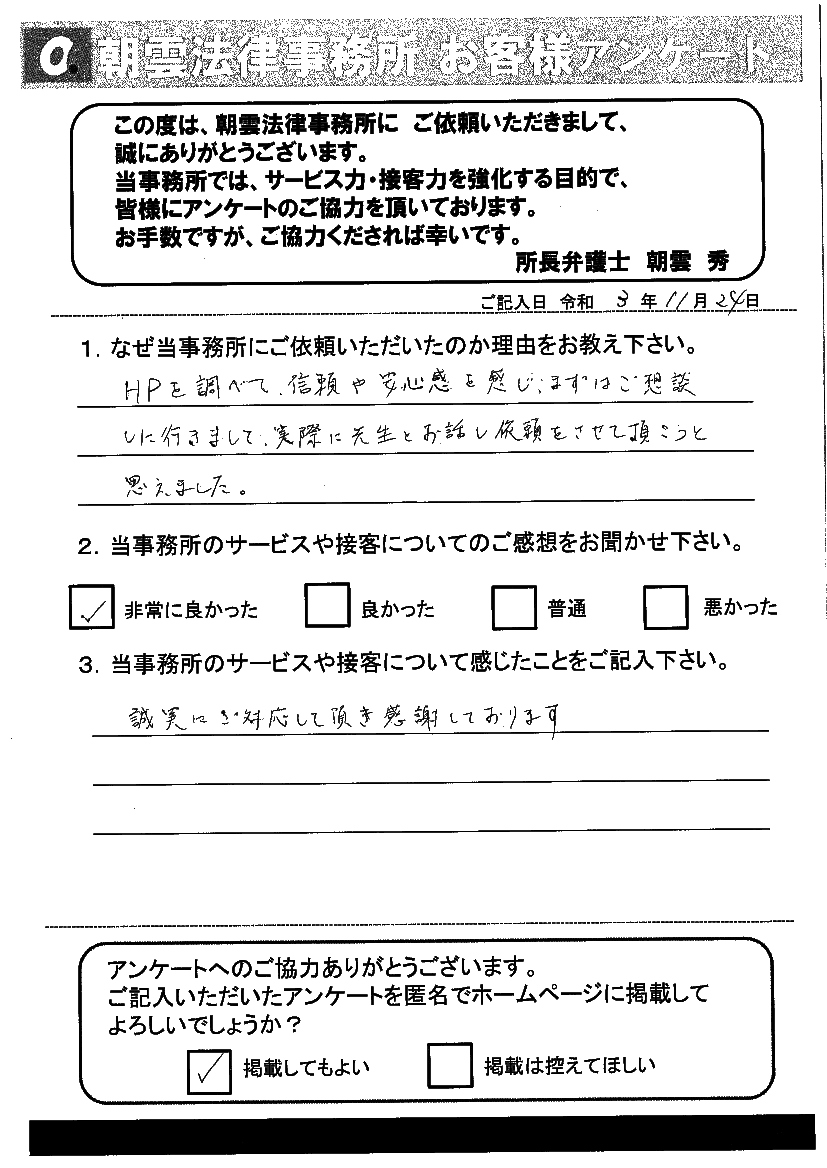 朝雲法律事務所 お客様アンケート
この度は、朝雲法律事務所に ご依頼いただきまして、
誠にありがとうございます。
当事務所では、サービス力・接客力を強化する目的で、
皆様にアンケートのご協力を頂いております。
お手数ですが、ご協力くだされば幸いです。
所長弁護士 朝雲 秀
ご記入日 令和 3 年 11 月 24 日
1. なぜ当事務所にご依頼いただいたのか理由をお教え下さい。
HPを調べて、信頼や安心感を感じ、まずはご相談
しに行きまして、実際に先生とお話し依頼をさせて頂こうと
思えました。
2. 当事務所のサービスや接客についてのご感想をお聞かせ下さい。
✓ 非常に良かった 良かった 普通 悪かった
3. 当事務所のサービスや接客について感じたことをご記入下さい。
誠実にご対応して頂き感謝しております
アンケートへのご協力ありがとうございます。
ご記入いただいたアンケートを匿名でホームページに掲載して
よろしいでしょうか？
✓ 掲載してもよい 掲載は控えてほしい